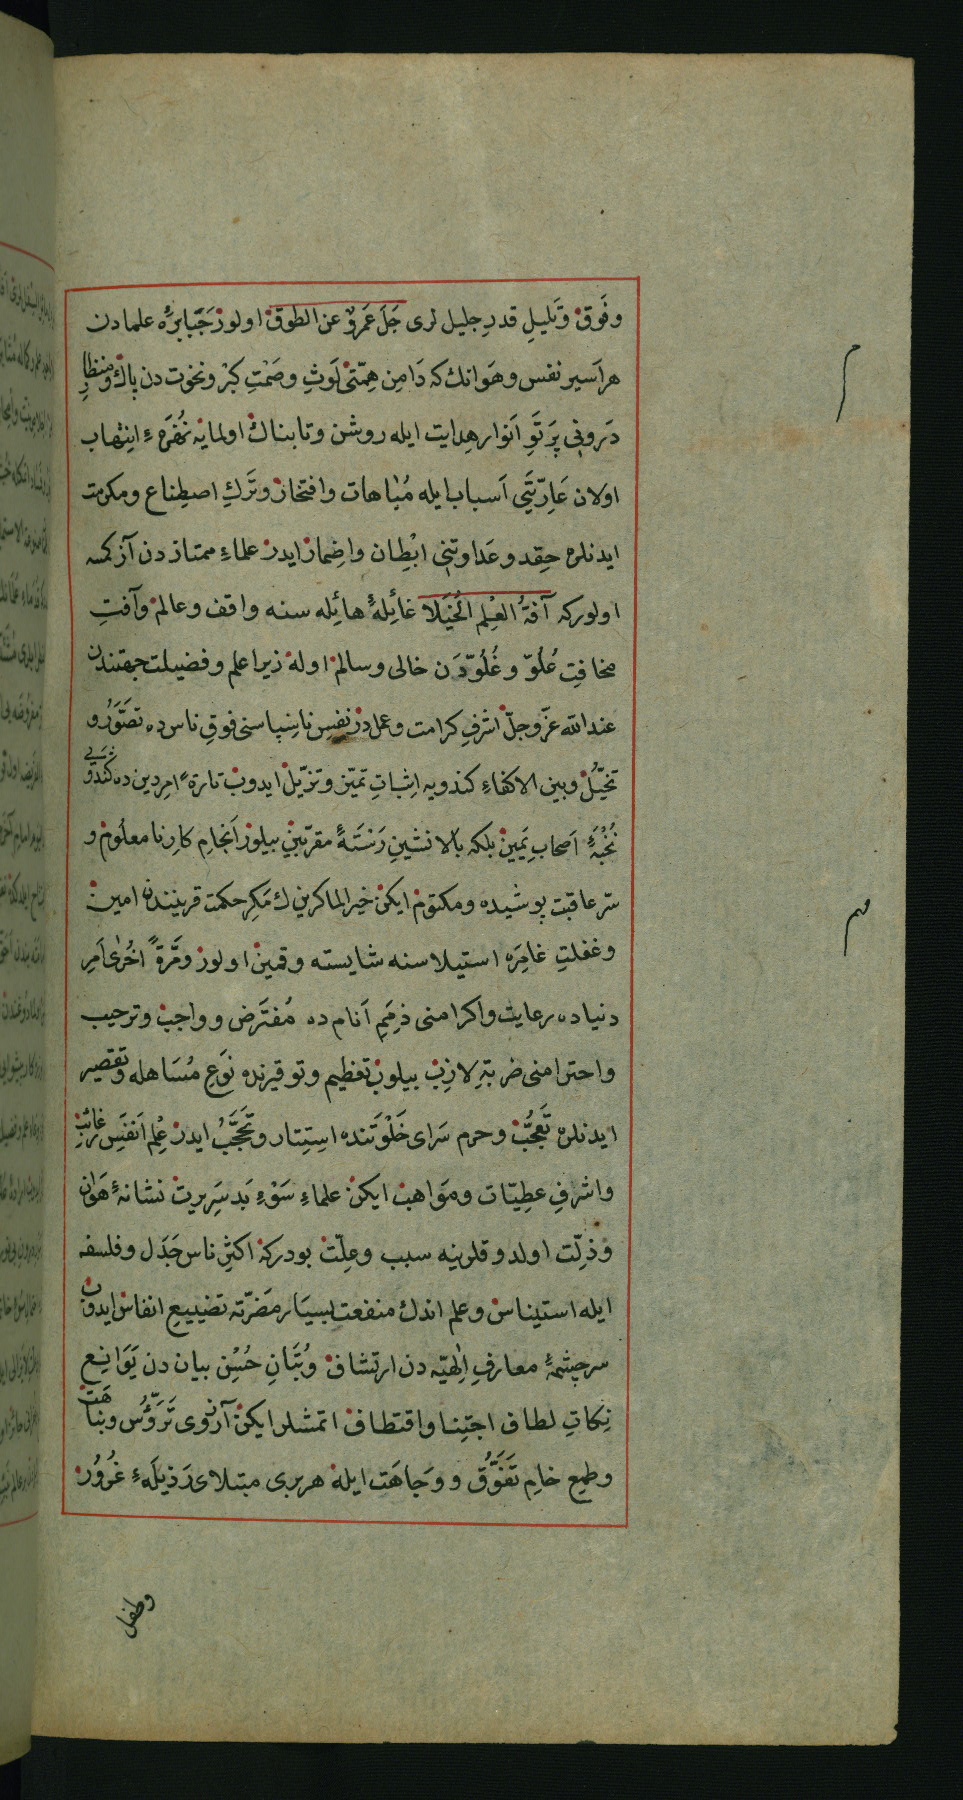 وفَوق وقَليلِ قدرِ جليل لرى جَلَ عَمرٌو عن الطوق اولور جَبَابرَهٔ علمادن
هر اَسيرِ نفس وهَوانك كه دَامِن هِمّتى لَوثِ وصَمْتِ كبْر ونخوت دن پاك ومنظارِ
دَرونى پَرتَوِ اَنوارِ هدايت ايله روشن وتابناك اولمايه نُهْزَهءِ اِنتْهاب
اولان عَارِيّتى اَسباب ايله مُبَاهات وافتخار وتَركِ اصطِناع ومكرمت
ايدنلره حِقد وعَداوتنى اِبْطِان واِضِمار ايدر علماءِ ممتازدن آز كمسه
اولوركه آفةُ العِلم الخُيَلا غائِلهٔ هائِله سنه واقف وعالم وآفتِ
مخافتِ عُلوّ وغُلوّدَن خالى وسالم اوله زيرا علم وفضيلت جهتندن
عند الله عزّ وجلّ اشرفِ كرامت وعملدر نفسِ ناسِپاسنى فوقِ ناس ده تصَوّر و
تخيّل وبين الاكفاءِ كندويه اِثباتِ تميّز وتزيّل ايدوب تارةً امرِ دين ده كندويى
نُخْبَهٔ اَصحابِ يَمين بلكه بَالانشينِ رَسْتَهٔ مقرّبين بيلور اَنجامِ كار نا معلُوم و
سّر عاقبت پوشيده ومكتوم ايكن خير الماكرين ك مَكرِ حكمت قرينندن امين
وغفلتِ غامِرَه استيلاسنه شايسته وقمين اولور ومَرّةً اُخرٰى اَمرِ
دنياده رعايت واكرامنى ذِمَمِ اَنام ده مُفتَرض وواجب وترحيب
واحترامنى ضربهٔ لازِب بيلوب تعظيم وتوقيرنده نَوعِ مُسَاهله وتقصير
ايدنلره تَعَجُّب وحرم سَراى خَلوَتنده استِتار وتَحَجُّب ايدر عِلم اَنفَسِ غرائب
واشرفِ عطِيّات ومَواهب ايكن علماءِ سَوْءِ بَد سَرِيرت نشانهٔ هَوان
وذِلّت اولدوقلرينه سبب وعِلّت بودركه اكثرِ ناس جَدَل وفلسفه
ايله استيناس وعلم اندك منفعت بسيار مَضرّته تضييعِ انفاس ايدوب
سرچشمهٔ معارفِ اِلٰهيّه دن ارتشاف وبُستَانِ حُسْنِ بيان دن يَوَانِع
نِكاتِ لطاف اجتِنا واقتطاف اتمشلر ايكن آرزوى تَرؤّس ونباهت
وطمعِ خامِ تَفَوُّق ووجَاهَت ايله هر برى مبتلاى رَذيلَهءِ غرُور
وطفل
م
م